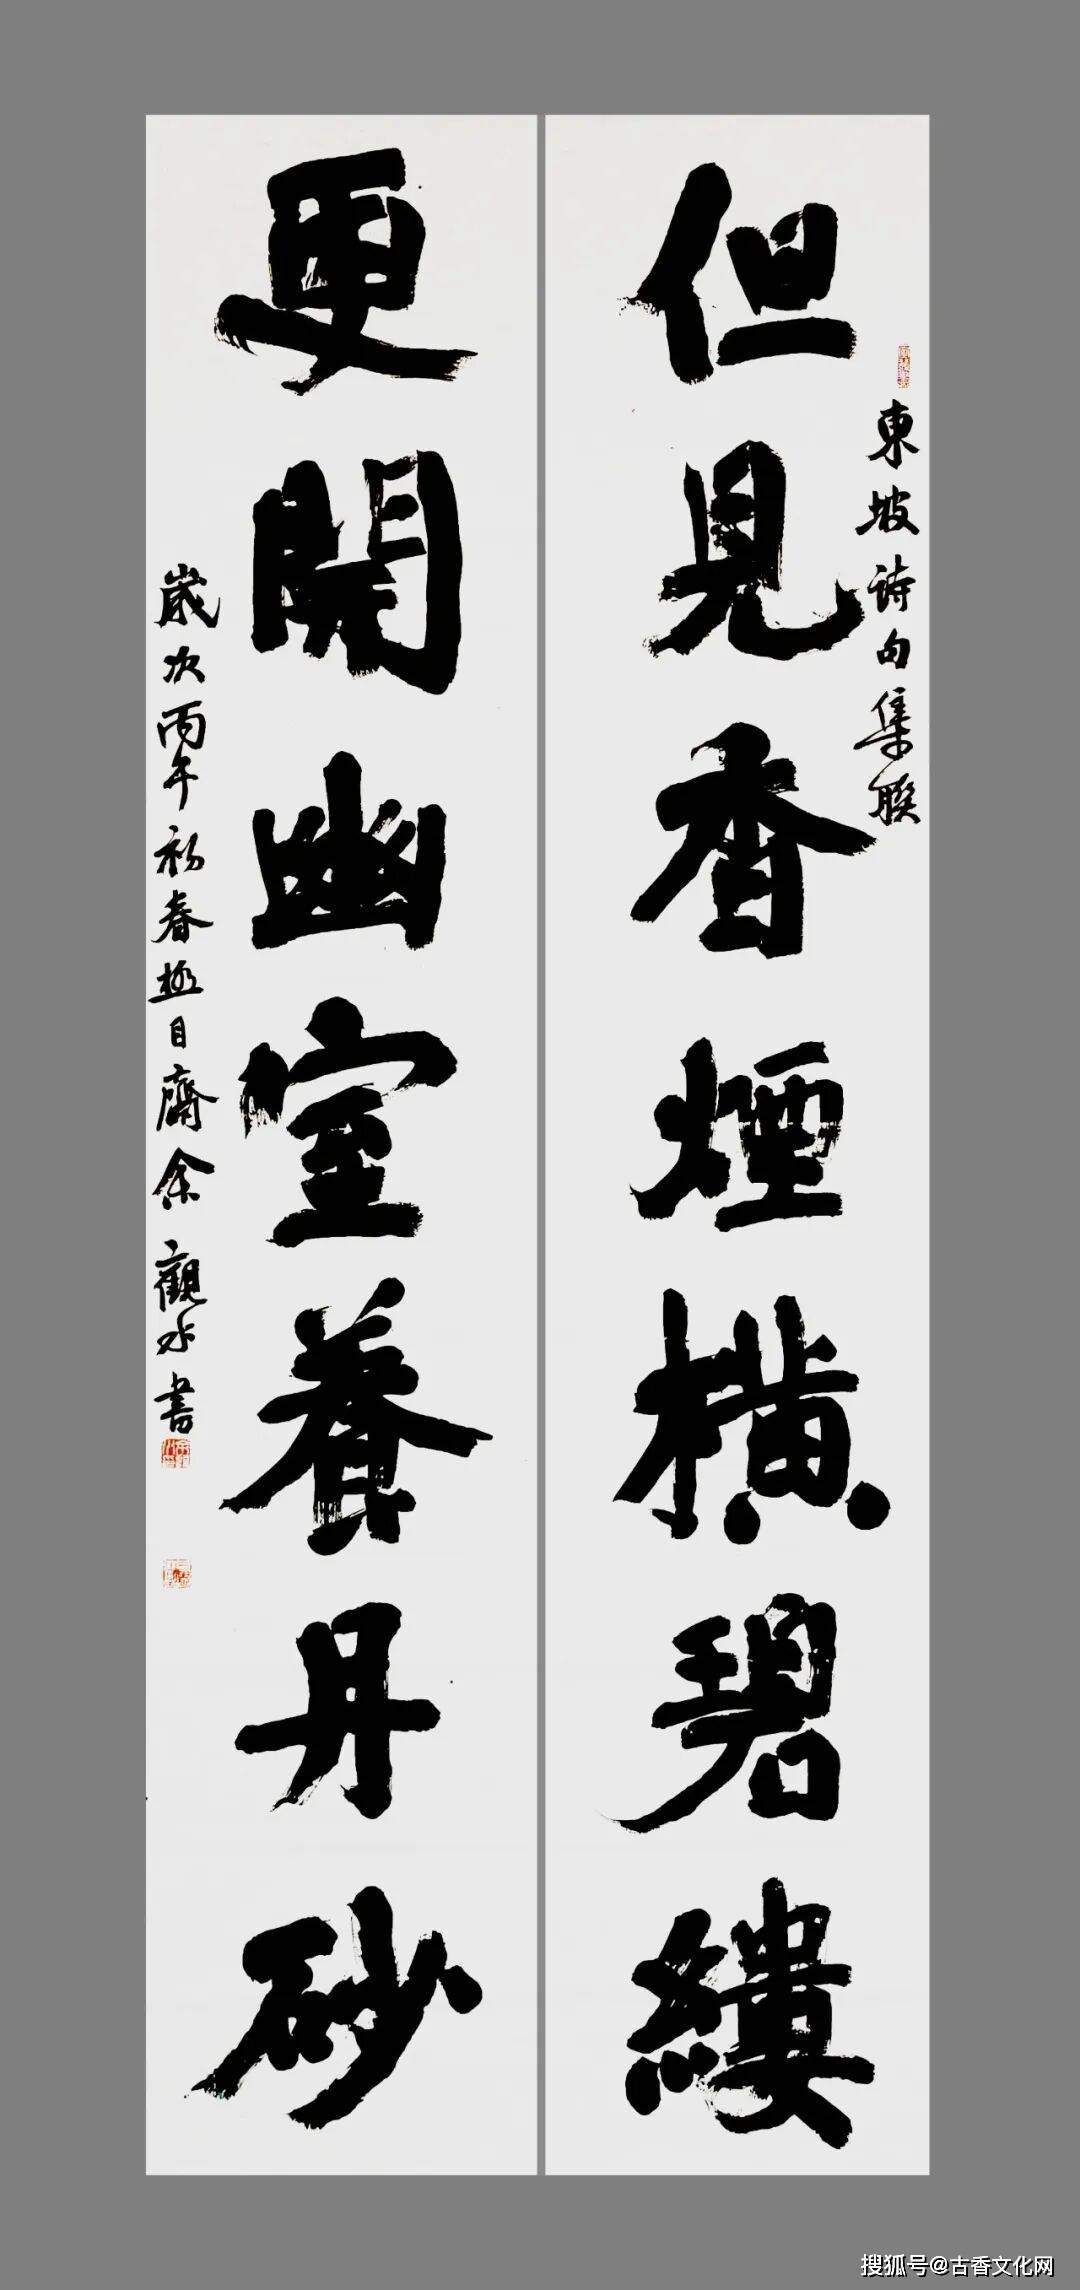 東坡诗句集聯
但見香煙横碧縷
更開幽室養丹砂
歲次丙午初春極目齋余觀水書
搜狐号@古香文化网